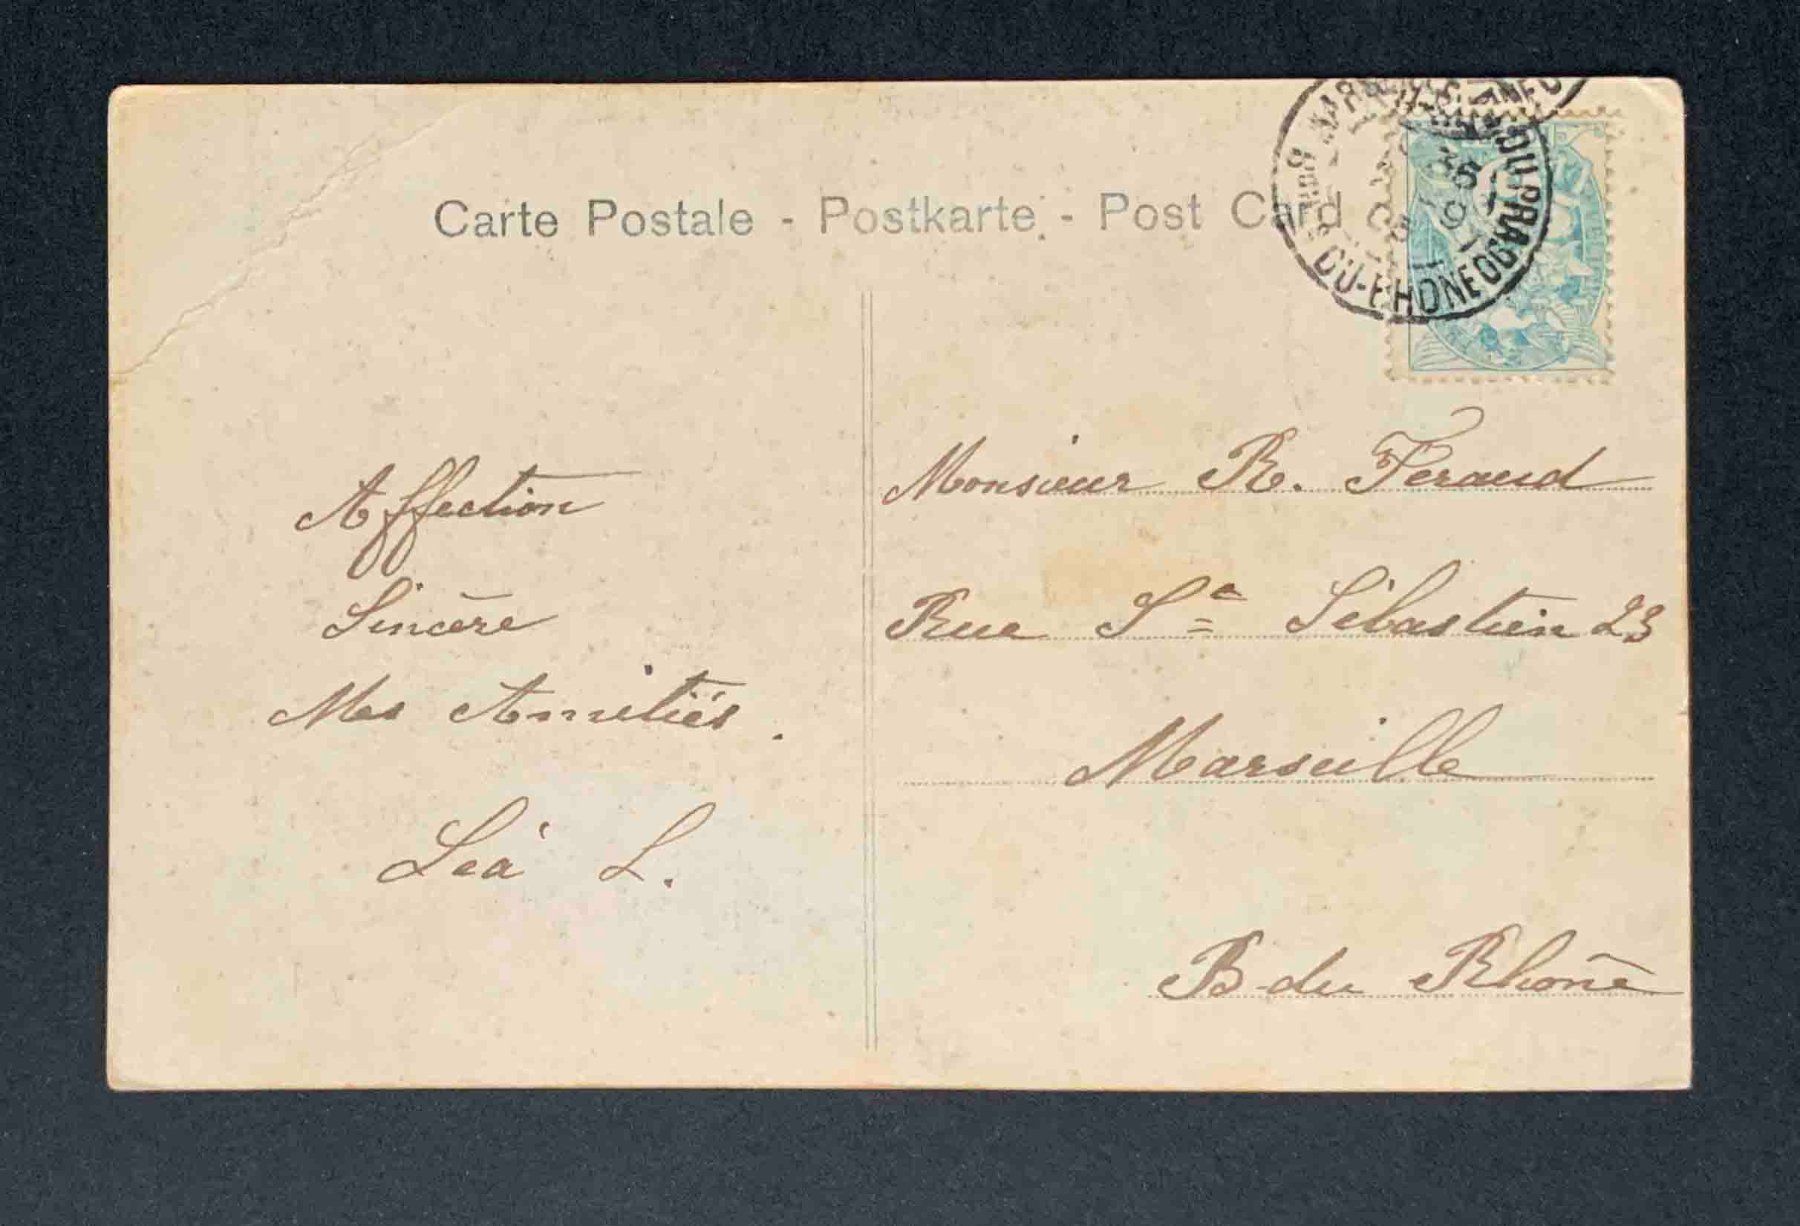 Carte Postale - Postkarte - Post Card
DU PRADO
DU-RHONE
Affection
Sincère
Mes Amitiés.
Léa L.
Monsieur R. Feraud
Rue Sᵃ Sébastien 23
Marseille
B-du Rhône